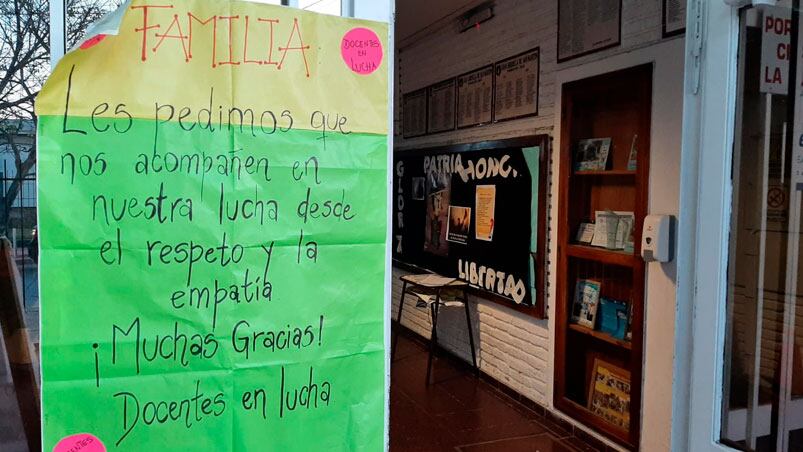 FAMILIA
DOCENTES
EN
LUCHA
Les pedimos que
nos acompañen en
nuestra lucha desde
el respeto y la
empatía
¡Muchas Gracias!
Docentes en lucha
DOCENTES
PATRIA
HONO
GLORIA
LIBERTAD
POR
LA